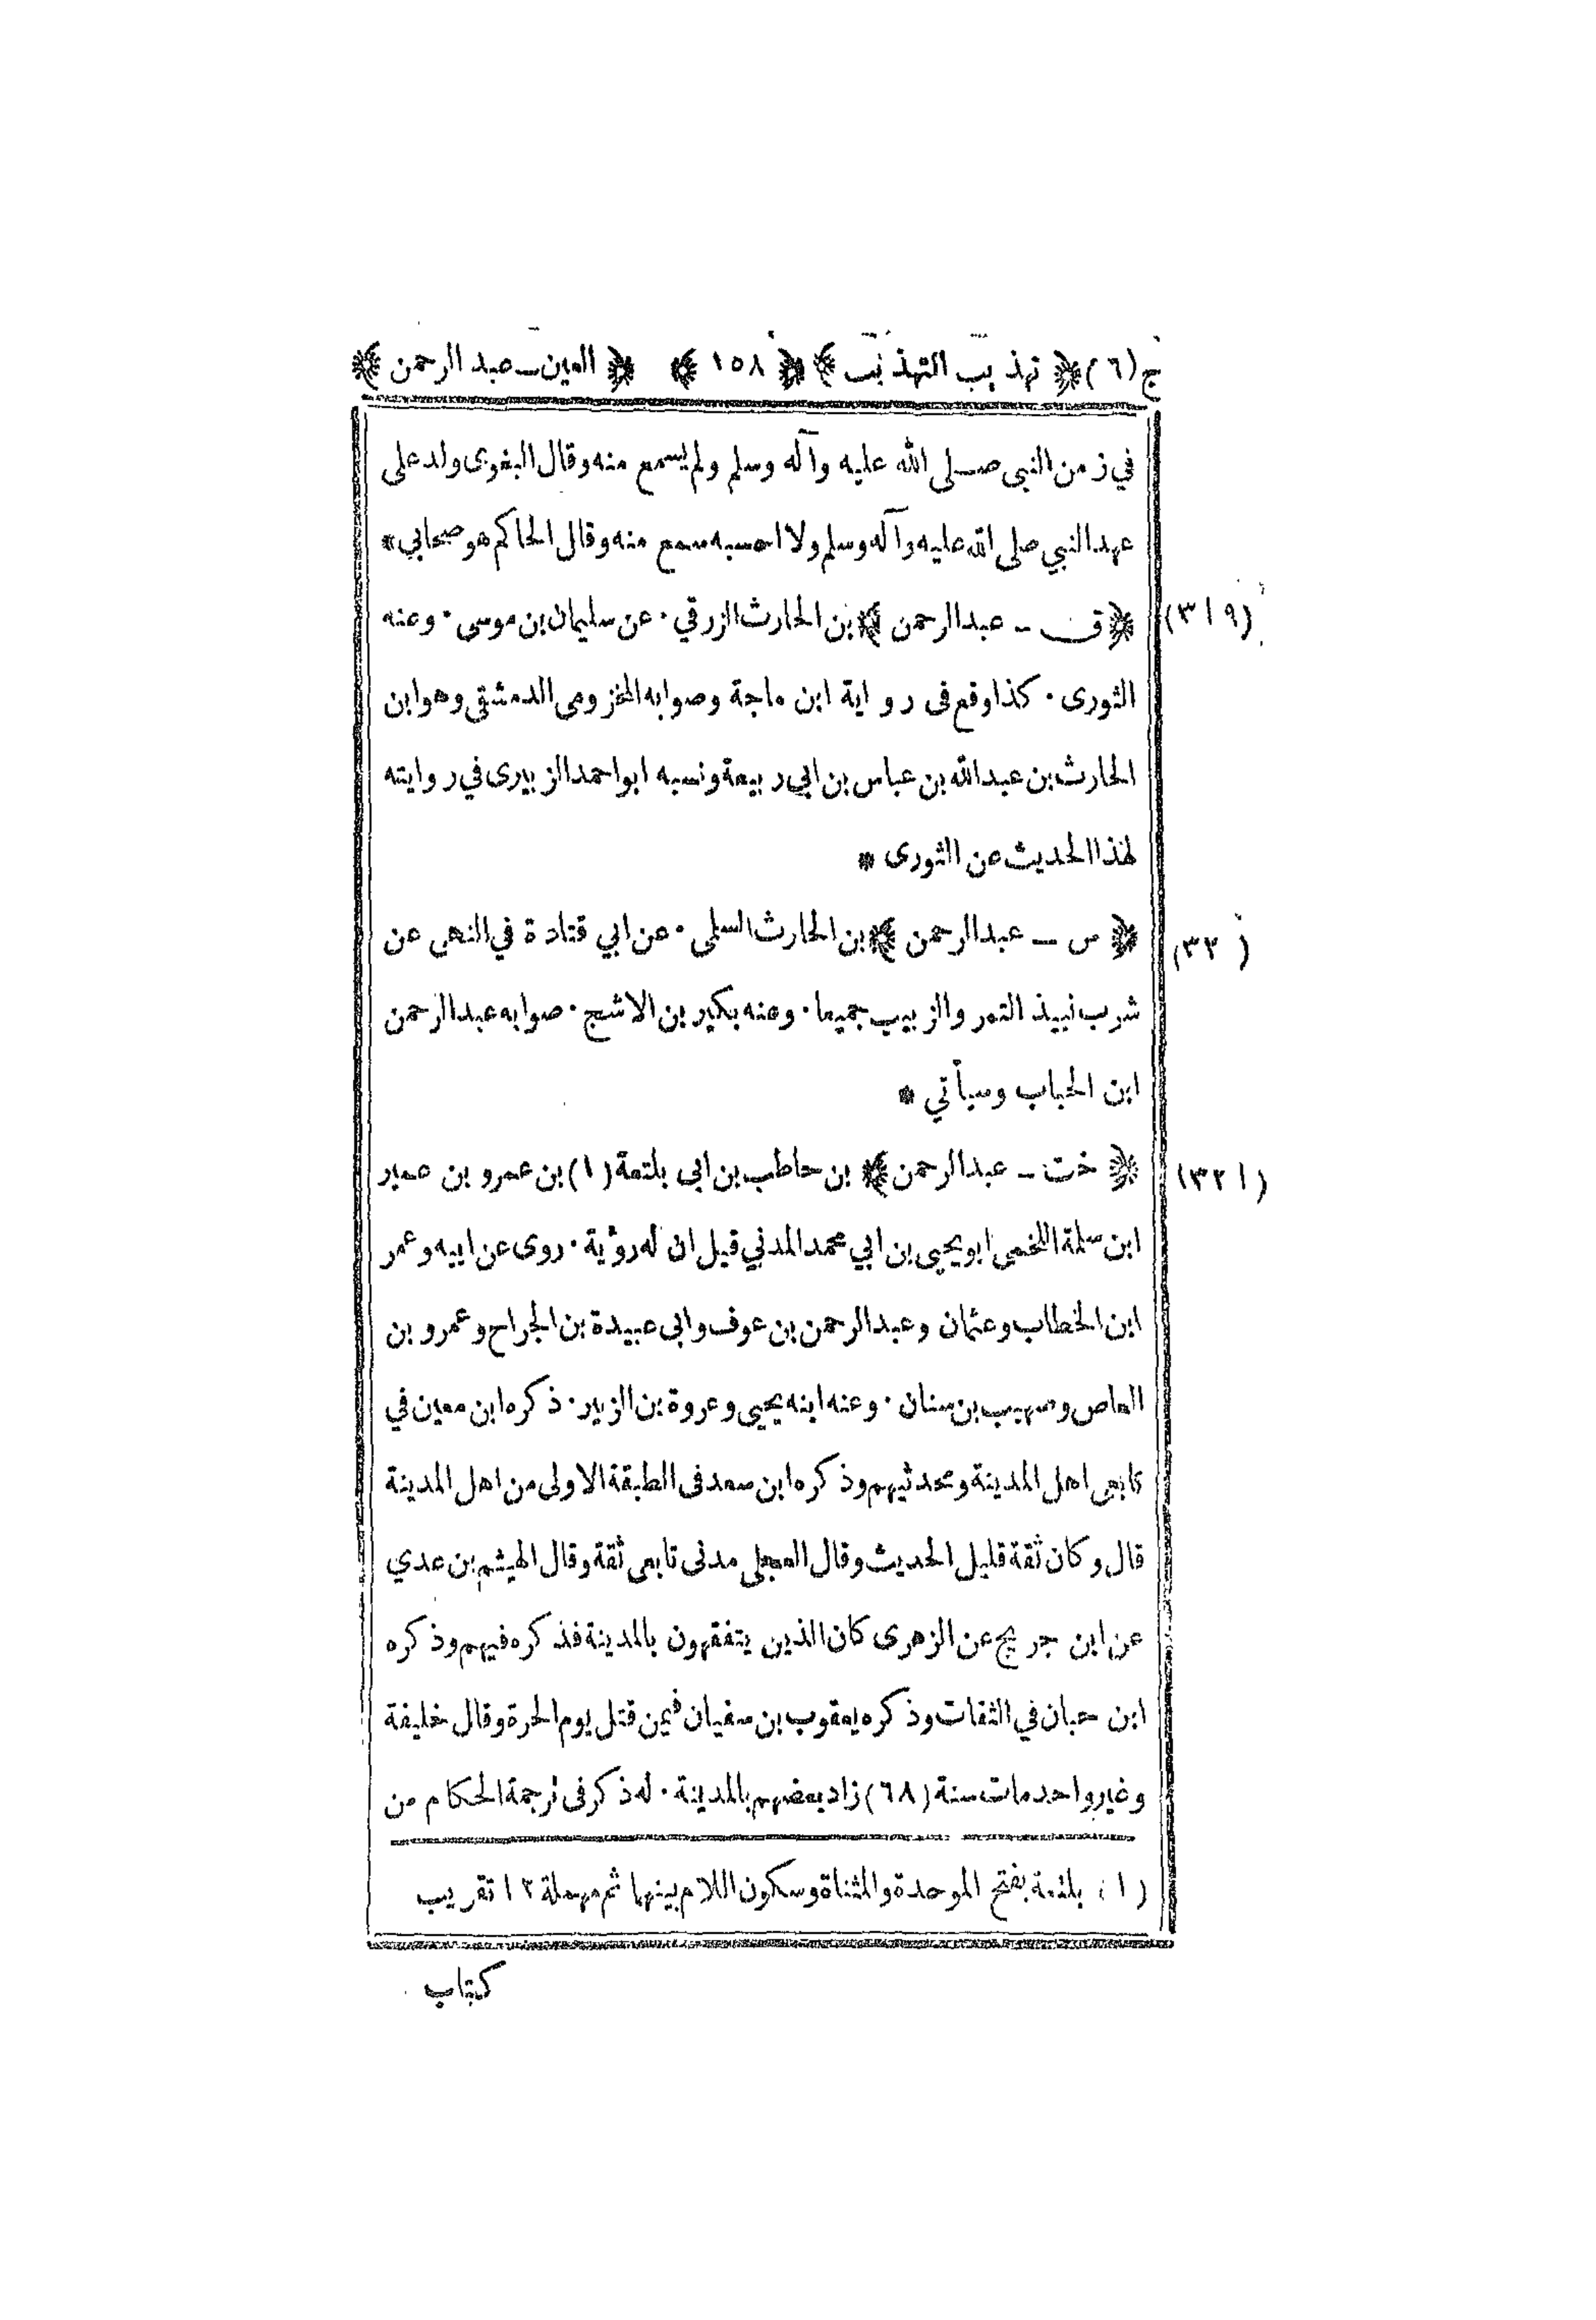 ج (٦) ﴿ تهذيب التهذيب ﴾ ﴿ ١٥٨ ﴾ ﴿ العين ـ عبد الرحمن ﴾
في زمن النبى صلى الله عليه وآله وسلم ولم يسمع منه وقال البغوى ولد على
عهد النبي صلى الله عليه وآله وسلم ولا احسبه سمع منه وقال الحاكم هو صحابي *
(٣١٩) ﴿ ق ـ عبد الرحمن ﴾ بن الحارث الزرقي ٠ عن سليمان بن موسى ٠ وعنه
الثورى ٠ كذا وقع فى رواية ابن ماجة وصوابه المخزومى الدمشقى وهو ابن
الحارث بن عبد الله بن عباس بن ابي ربيعة ونسبه ابو احمد الزبيرى في روايته
لهذا الحديث عن الثورى *
(٣٢ ) ﴿ س ـ عبد الرحمن ﴾ بن الحارث السلمى ٠ عن ابي قتادة في النهى عن
شرب نبيذ التمر والزبيب جميعا ٠ وعنه بكير بن الاشج ٠ صوابه عبد الرحمن
ابن الحباب وسيأتي *
(٣٢١) ﴿ خت ـ عبد الرحمن ﴾ بن حاطب بن ابى بلتعة (١) بن عمرو بن عمير
ابن سلمة اللخمى ابو يحيى بن ابي محمد المدني قيل ان له رؤية ٠ روى عن ابيه وعمر
ابن الخطاب وعثمان وعبد الرحمن بن عوف وابى عبيدة بن الجراح وعمرو بن
العاص وصهيب بن سنان ٠ وعنه ابنه يحيى وعروة بن الزبير ٠ ذكره ابن معين في
تابعى اهل المدينة ومحدثيهم وذكره ابن سعد فى الطبقة الاولى من اهل المدينة
قال وكان ثقة قليل الحديث وقال العجلى مدنى تابعى ثقة وقال الهيثم بن عدي
عن ابن جريج عن الزهرى كان الذين يتفقهون بالمدينة فذكره فيهم وذكره
ابن حبان في الثقات وذكره يعقوب بن سفيان فيمن قتل يوم الحرة وقال خليفة
وغير واحد مات سنة (٦٨) زاد بعضهم بالمدينة ٠ له ذكر فى ترجمة الحكام من
(١) بلتعة بفتح الموحدة والمثناة وسكون اللام بينهما ثم مهملة ١٢ تقريب
كتاب